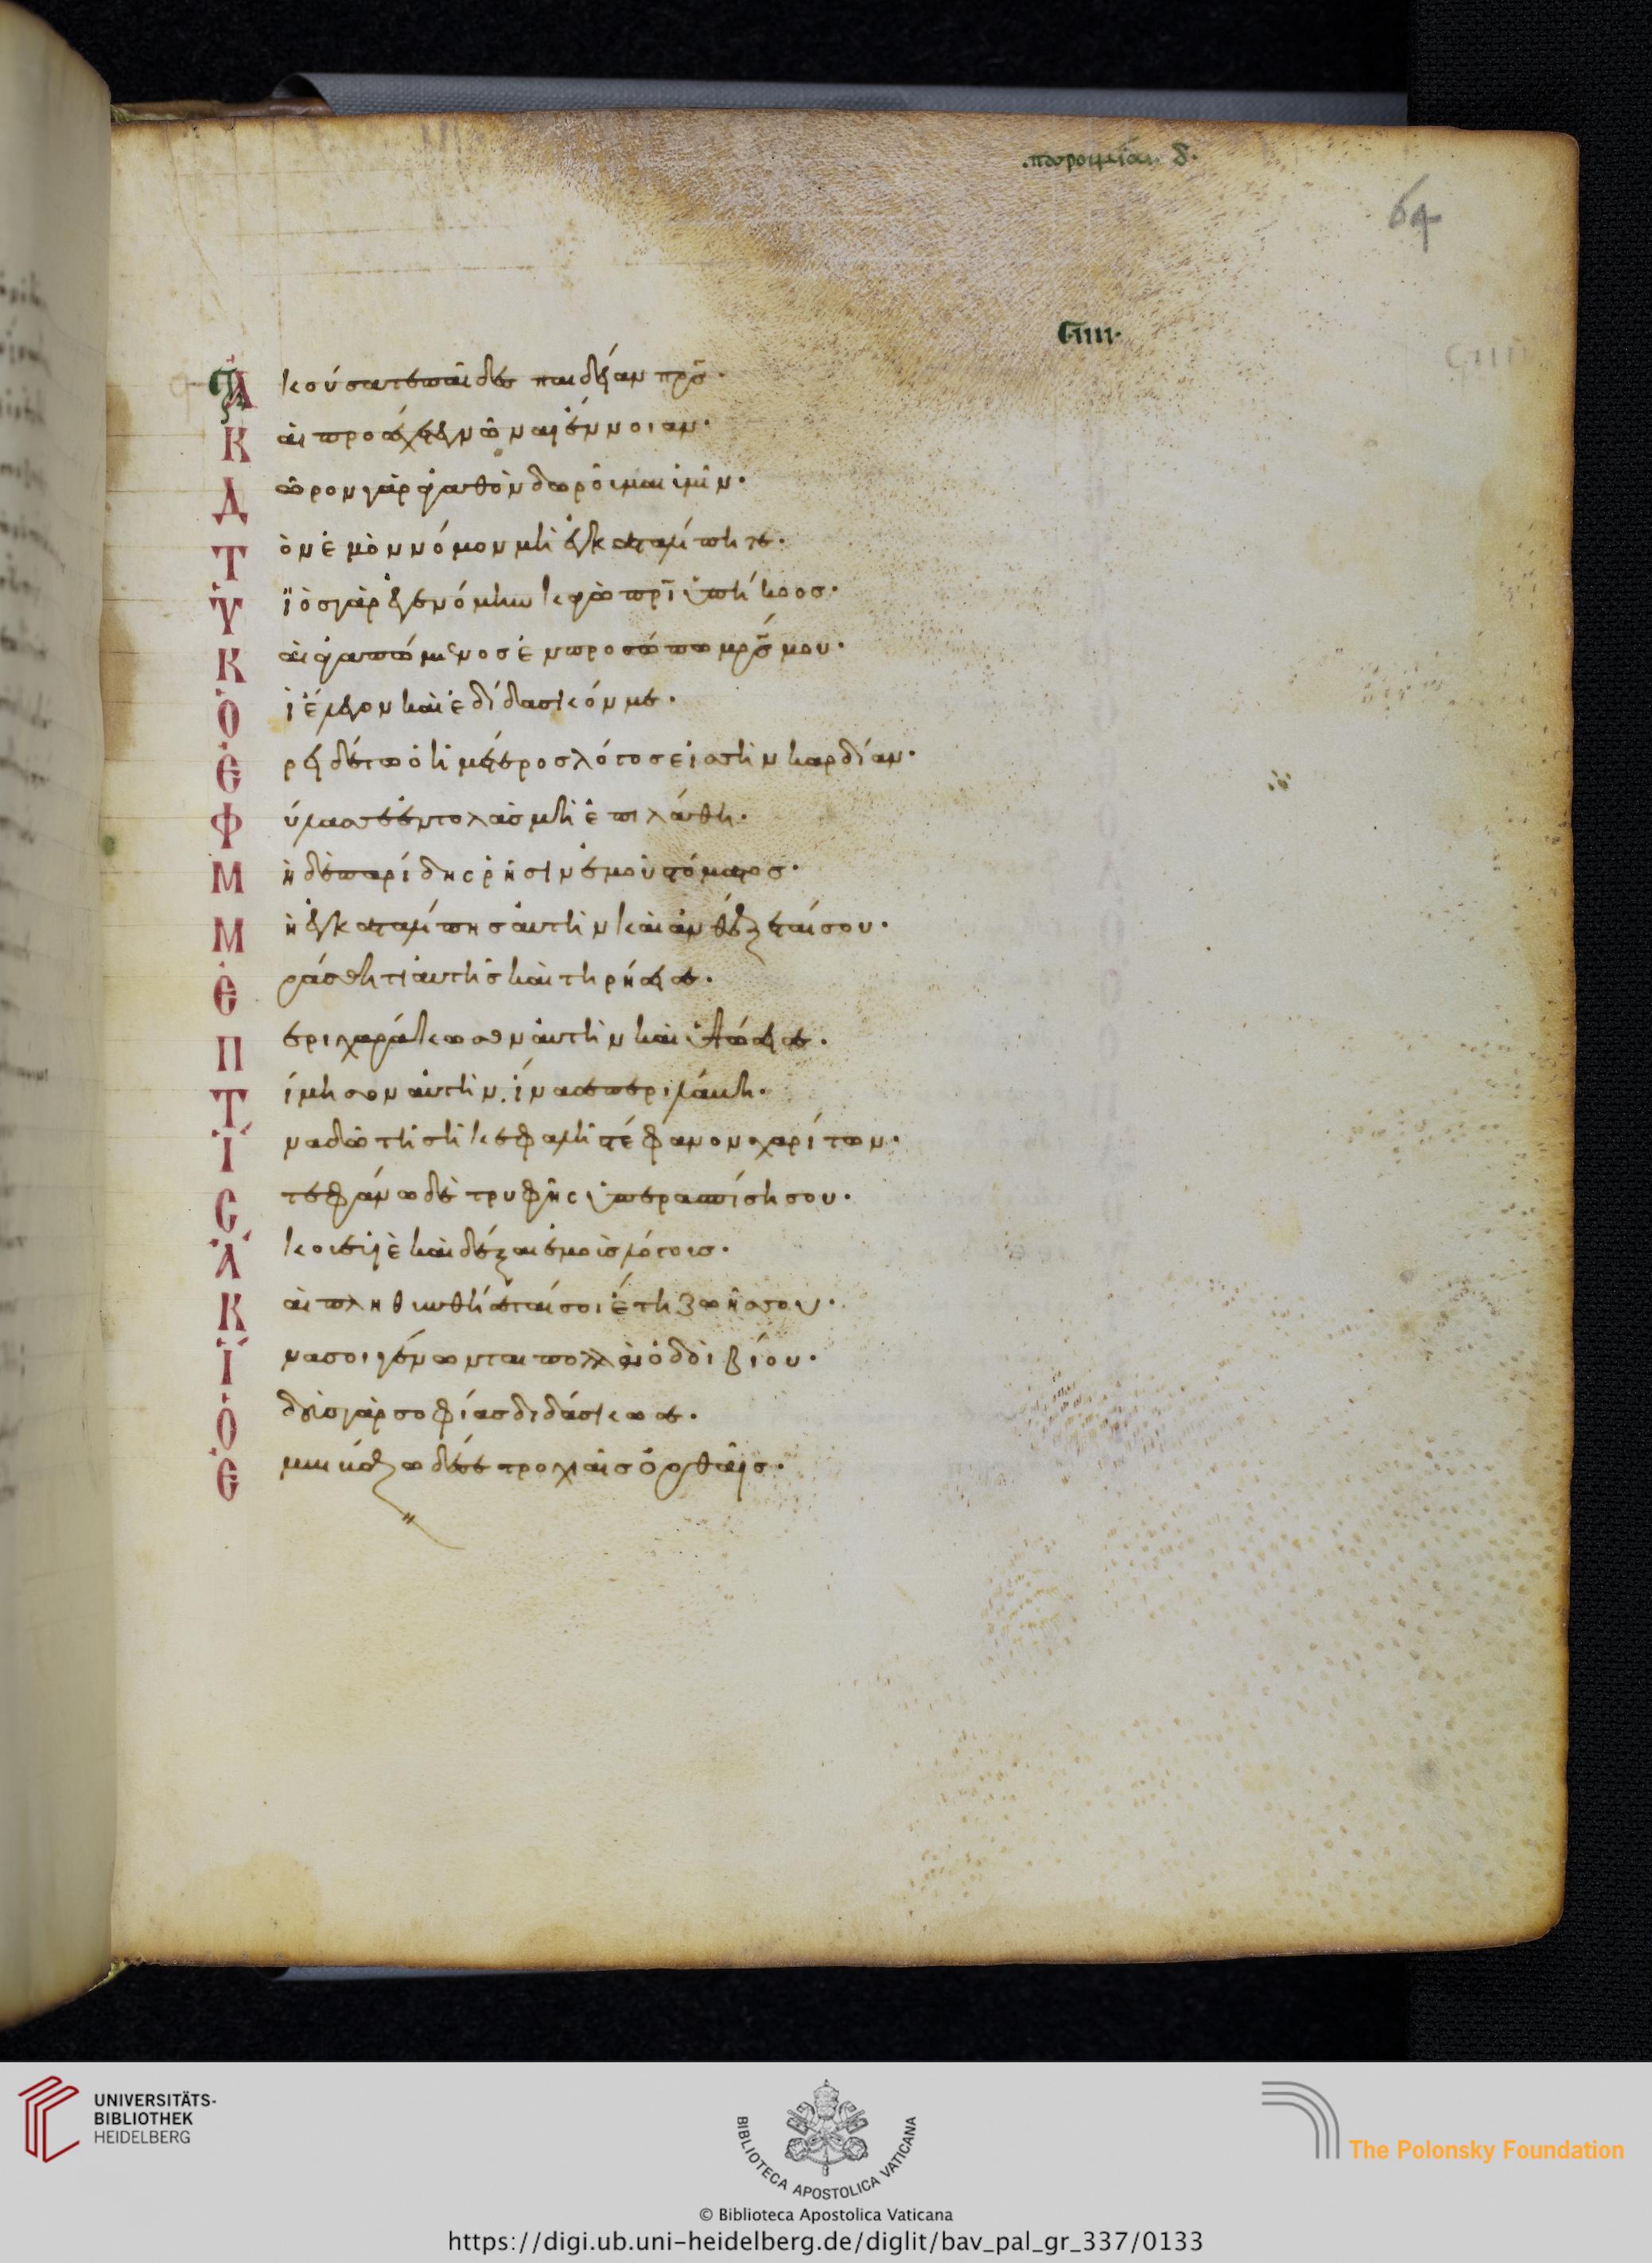 ·παροιμίαι δ·
64
Ciiii·
Ἀκούσατε παῖδες παιδείαν πρς·
Καὶ προσέχετε γνῶναι ἔννοιαν·
Δῶρον γὰρ ἀγαθὸν δωροῦμαι ὑμῖν·
Τὸν ἐμὸν νόμον μὴ ἐγκαταλίπητε·
Υἱὸς γὰρ ἐγενόμην κἀγὼ πρι ὑπήκοος·
Καὶ ἀγαπώμενος ἐν προσώπω μρς μου·
Οἱ ἔλεγον καὶ ἐδίδασκόν με·
Ἐρειδέτω ὁ ἡμέτερος λόγος εἰς σὴν καρδίαν·
Φύλασσε ἐντολὰς μὴ ἐπιλάθη·
Μὴ δὲ παρίδης ῥῆσιν ἐμοῦ στόματος·
Μὴ ἐγκαταλίπης αὐτὴν καὶ ἀνθέξεταί σου·
Ἐράσθητι αὐτῆς καὶ τηρήσει σε·
Περιχαράκωσον αὐτὴν καὶ ὑψώσει σε·
Τίμησον αὐτὴν, ἵνα σε περιλάβη·
Ἵνα δῶ τῆ σῆ κεφαλῆ στέφανον χαρίτων·
Στεφάνω δὲ τρυφῆς ὑπερασπίση σου·
Ἄκουε υἱὲ καὶ δέξαι ἐμοὺς λόγους·
Καὶ πληθυνθήσεταί σοι ἔτη ζωῆς σου·
Ἵνα σοι γένωνται πολλαὶ ὁδοὶ βίου·
Ὁδοὺς γὰρ σοφίας διδάσκω σε·
Ἐμβιβάζω δέ σε τροχιαῖς ὀρθαῖς·
UNIVERSITÄTS-
BIBLIOTHEK
HEIDELBERG
BIBLIOTECA APOSTOLICA VATICANA
The Polonsky Foundation
© Biblioteca Apostolica Vaticana
https://digi.ub.uni-heidelberg.de/diglit/bav_pal_gr_337/0133